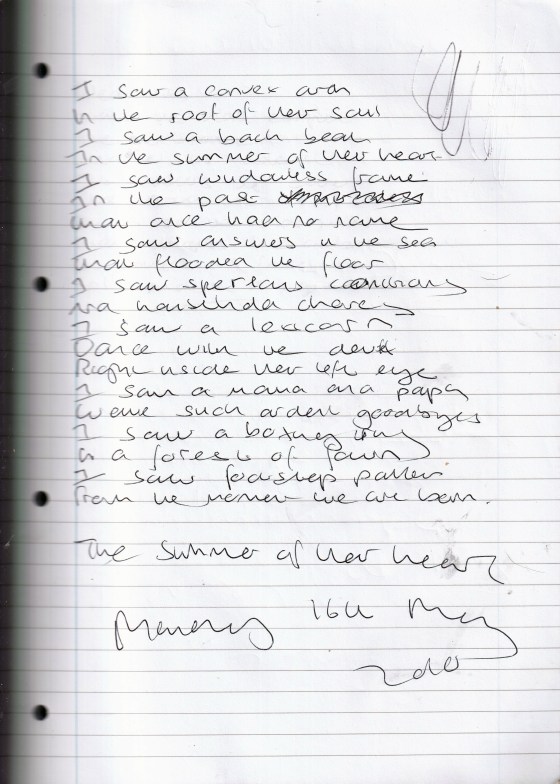 I saw a convex arch
In the roof of her soul
I saw a bach bean
In the summer of her heart
I saw windowless frame
In the past
That once had no name
I saw answers in the sea
That flooded the floor
I saw
I saw a lexicon
Dance with the devil
Right inside her left eye
I saw a mama and papa
Wave such ardent goodbyes
I saw a boxing ring
In a forest of fawn
I saw footstep pattern
From the moment we are born.
The summer of her heart
Monday 16th May
2010